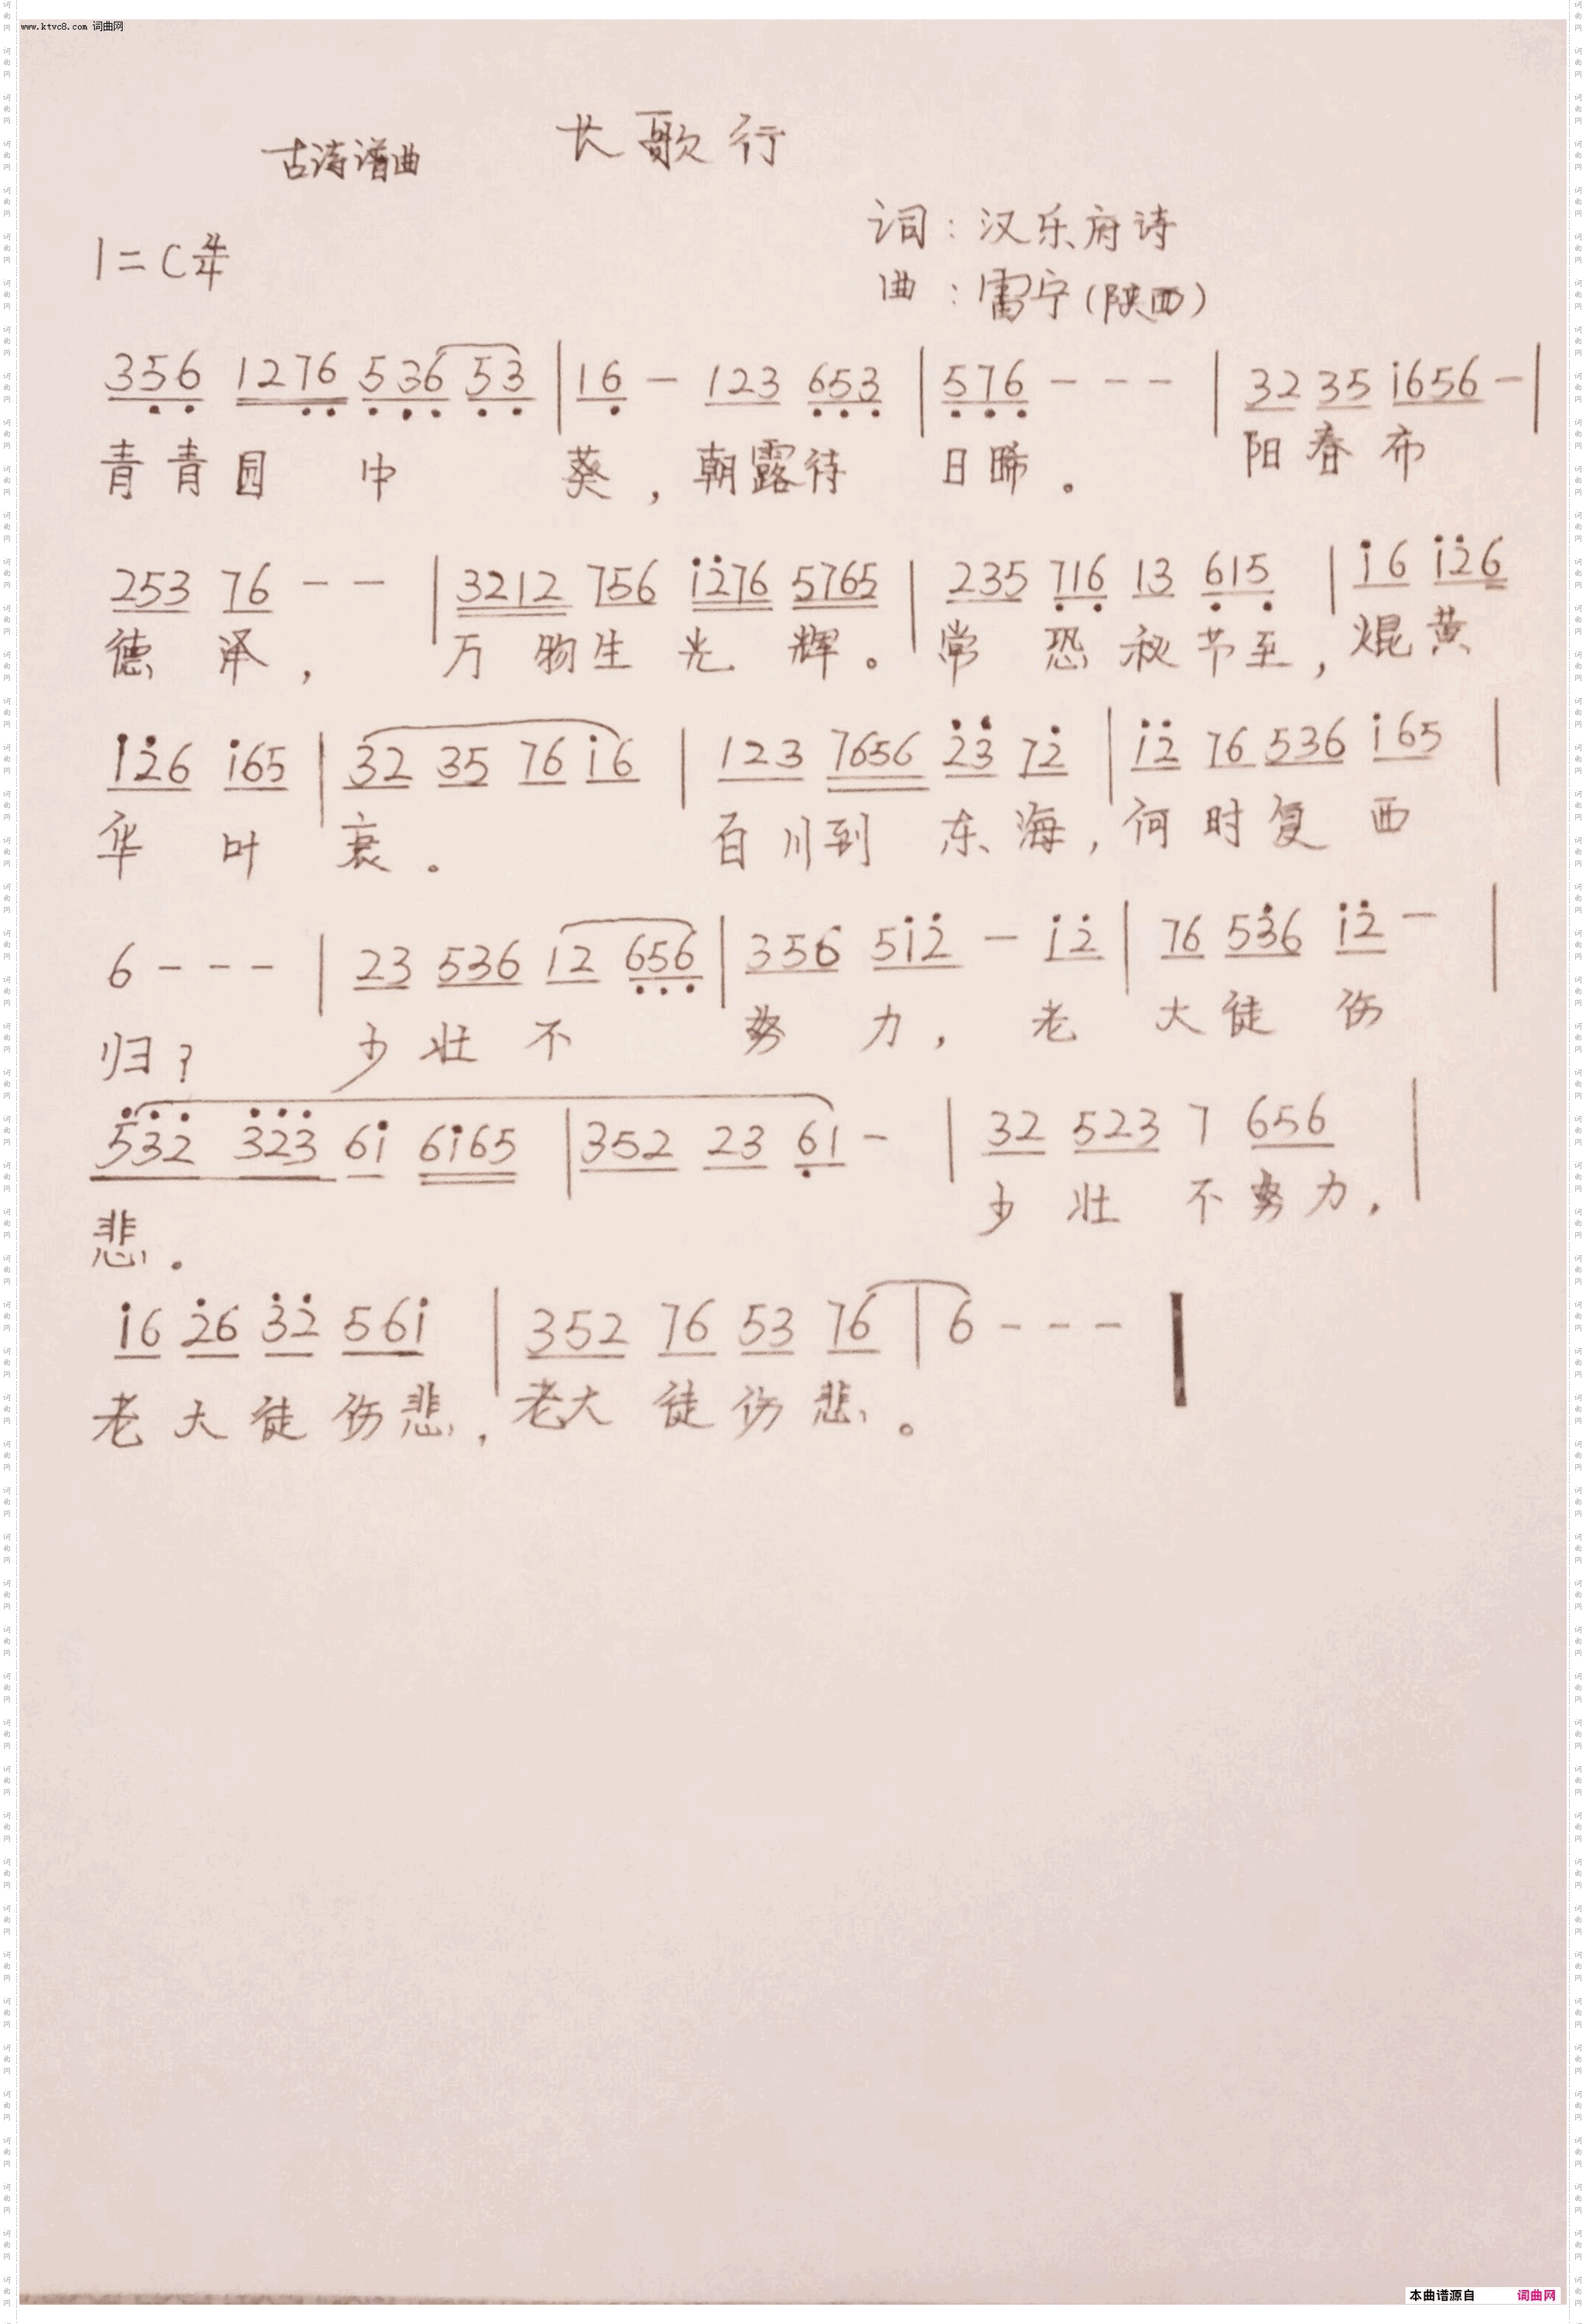 www.ktvc8.com 词曲网
古诗谱曲 长歌行
词：汉乐府诗
1=C 4/4
曲：雷宁(陕西)
356 1276 536 53 | 16 - 123 653 | 576 - - - | 32 35 i656 - |
青青园中葵，朝露待日晞。阳春布
253 76 - - | 3212 756 i276 5765 | 235 716 13 615 | i6 i26
德泽，万物生光辉。常恐秋节至，焜黄
i26 i65 | 32 35 76 i6 | 123 7656 23 72 | i2 76 536 i65 |
华叶衰。百川到东海，何时复西
6 - - - | 23 536 12 656 | 356 5i2 - i2 | 76 536 i2 - |
归？少壮不努力，老大徒伤
532 323 6i 6i65 | 352 23 61 - | 32 523 7 656 |
悲。少壮不努力，
i6 26 32 56i | 352 76 53 76 | 6 - - -
老大徒伤悲，老大徒伤悲。
本曲谱源自 词曲网